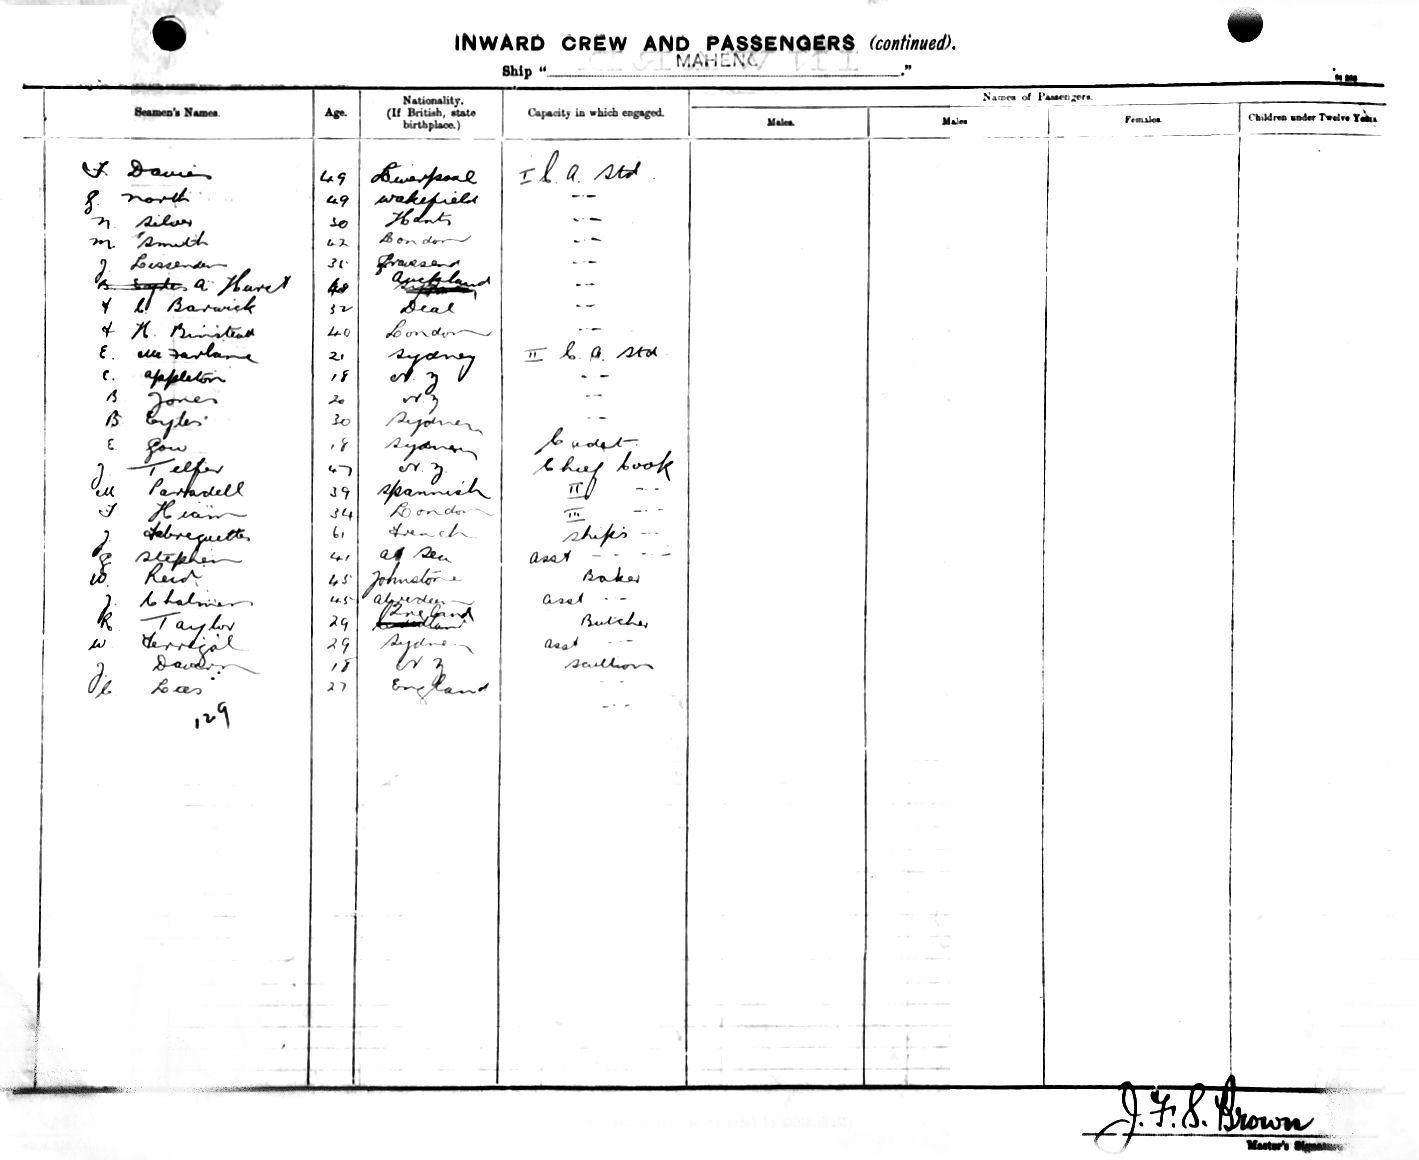 INWARD CREW AND PASSENGERS (continued).
Ship " MAHENO ."
Seamen's Names. Age. Nationality. (If British, state birthplace.) Capacity in which engaged. Names of Passengers.
Males. Males Females. Children under Twelve Years
F. Davies 49 Liverpool I C. A. Std
G. North 49 Wakefield -- --
N. Silver 30 Hants -- --
M. Smith 42 London -- --
J. Lissenden 35 Gravesend -- --
A Hurst 48 Auckland -- --
F C Barwick 32 Deal -- --
F H. Binstead 40 London -- --
E. McFarlane 21 Sydney II C. A. Std
C. Appleton 18 N. Z -- --
B Jones 20 N. Z -- --
B Eyles 30 Sydney -- --
E Gow 18 Sydney Cadet
J. Telfer 47 N. Z Chief Cook
M Parradell 39 Spannish II -- --
F Hiam 34 London III -- --
J. Fabreguettes 61 French Ships -- --
G Stephen 41 at Sea asst -- -- -- --
W. Reid 45 Johnstone Baker
J. Chalmers 45 Aberdeen asst -- --
R Taylor 29 England Butcher
W Terrigal 29 Sydney asst -- --
J. Davern 18 N Z Scullion
C Lees 27 England -- --
129
J. F. S. Brown
Master's Signature